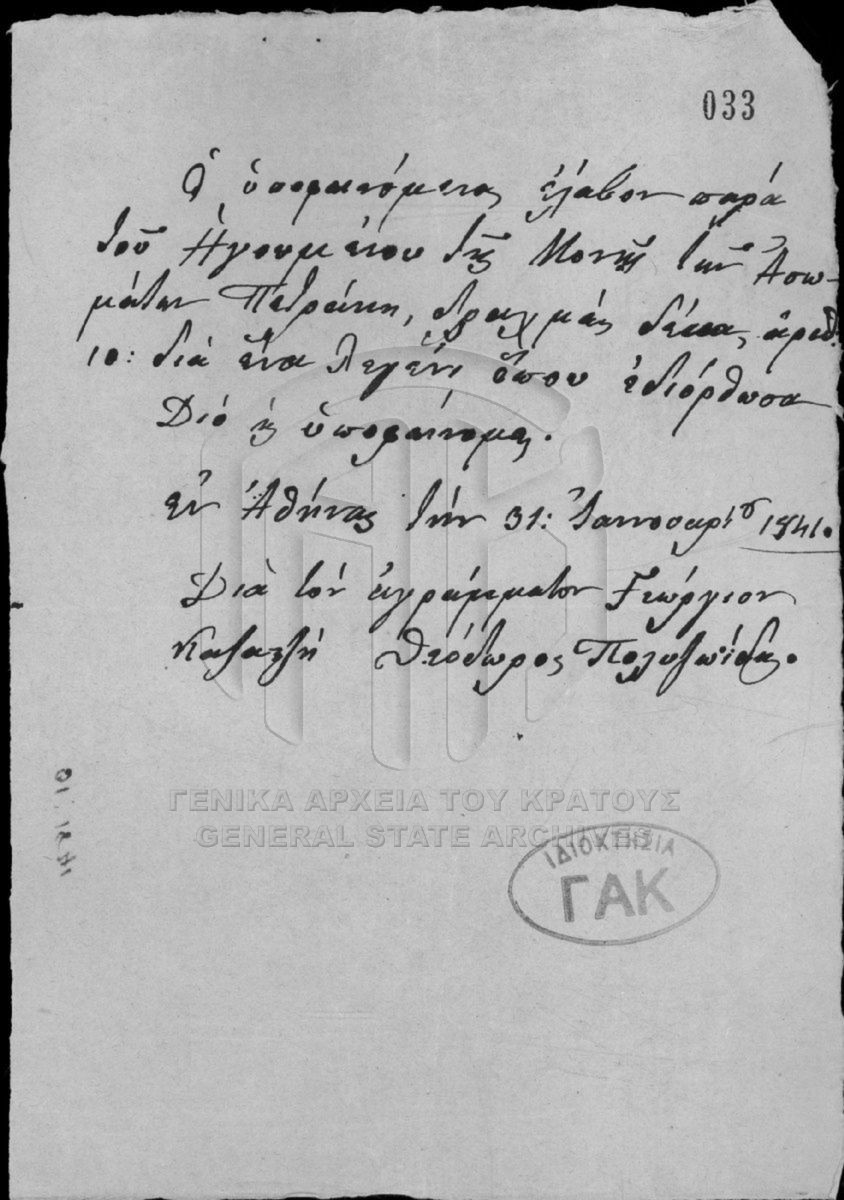 033
Ὁ ὑποφαινόμενος ἔλαβον παρὰ
τοῦ Ἡγουμένου τῆς Μονῆς τῶν Ἀσω-
μάτων Πετράκη, δραχμὰς δέκα, ἀριθ.
10: διὰ ἕνα λεγένι ὅπου ἐδιόρθωσα
Διὸ κ ὑποφαίνομαι.
Ἐν Ἀθήναις τὴν 31: Ἰαννουαρίου 1841.
Διὰ τὸν ἀγράμματον Γεώργιον
Θεόδωρος
ΓΕΝΙΚΑ ΑΡΧΕΙΑ ΤΟΥ ΚΡΑΤΟΥΣ
GENERAL STATE ARCHIVES
ΙΔΙΟΚΤΗΣΙΑ
ΓΑΚ